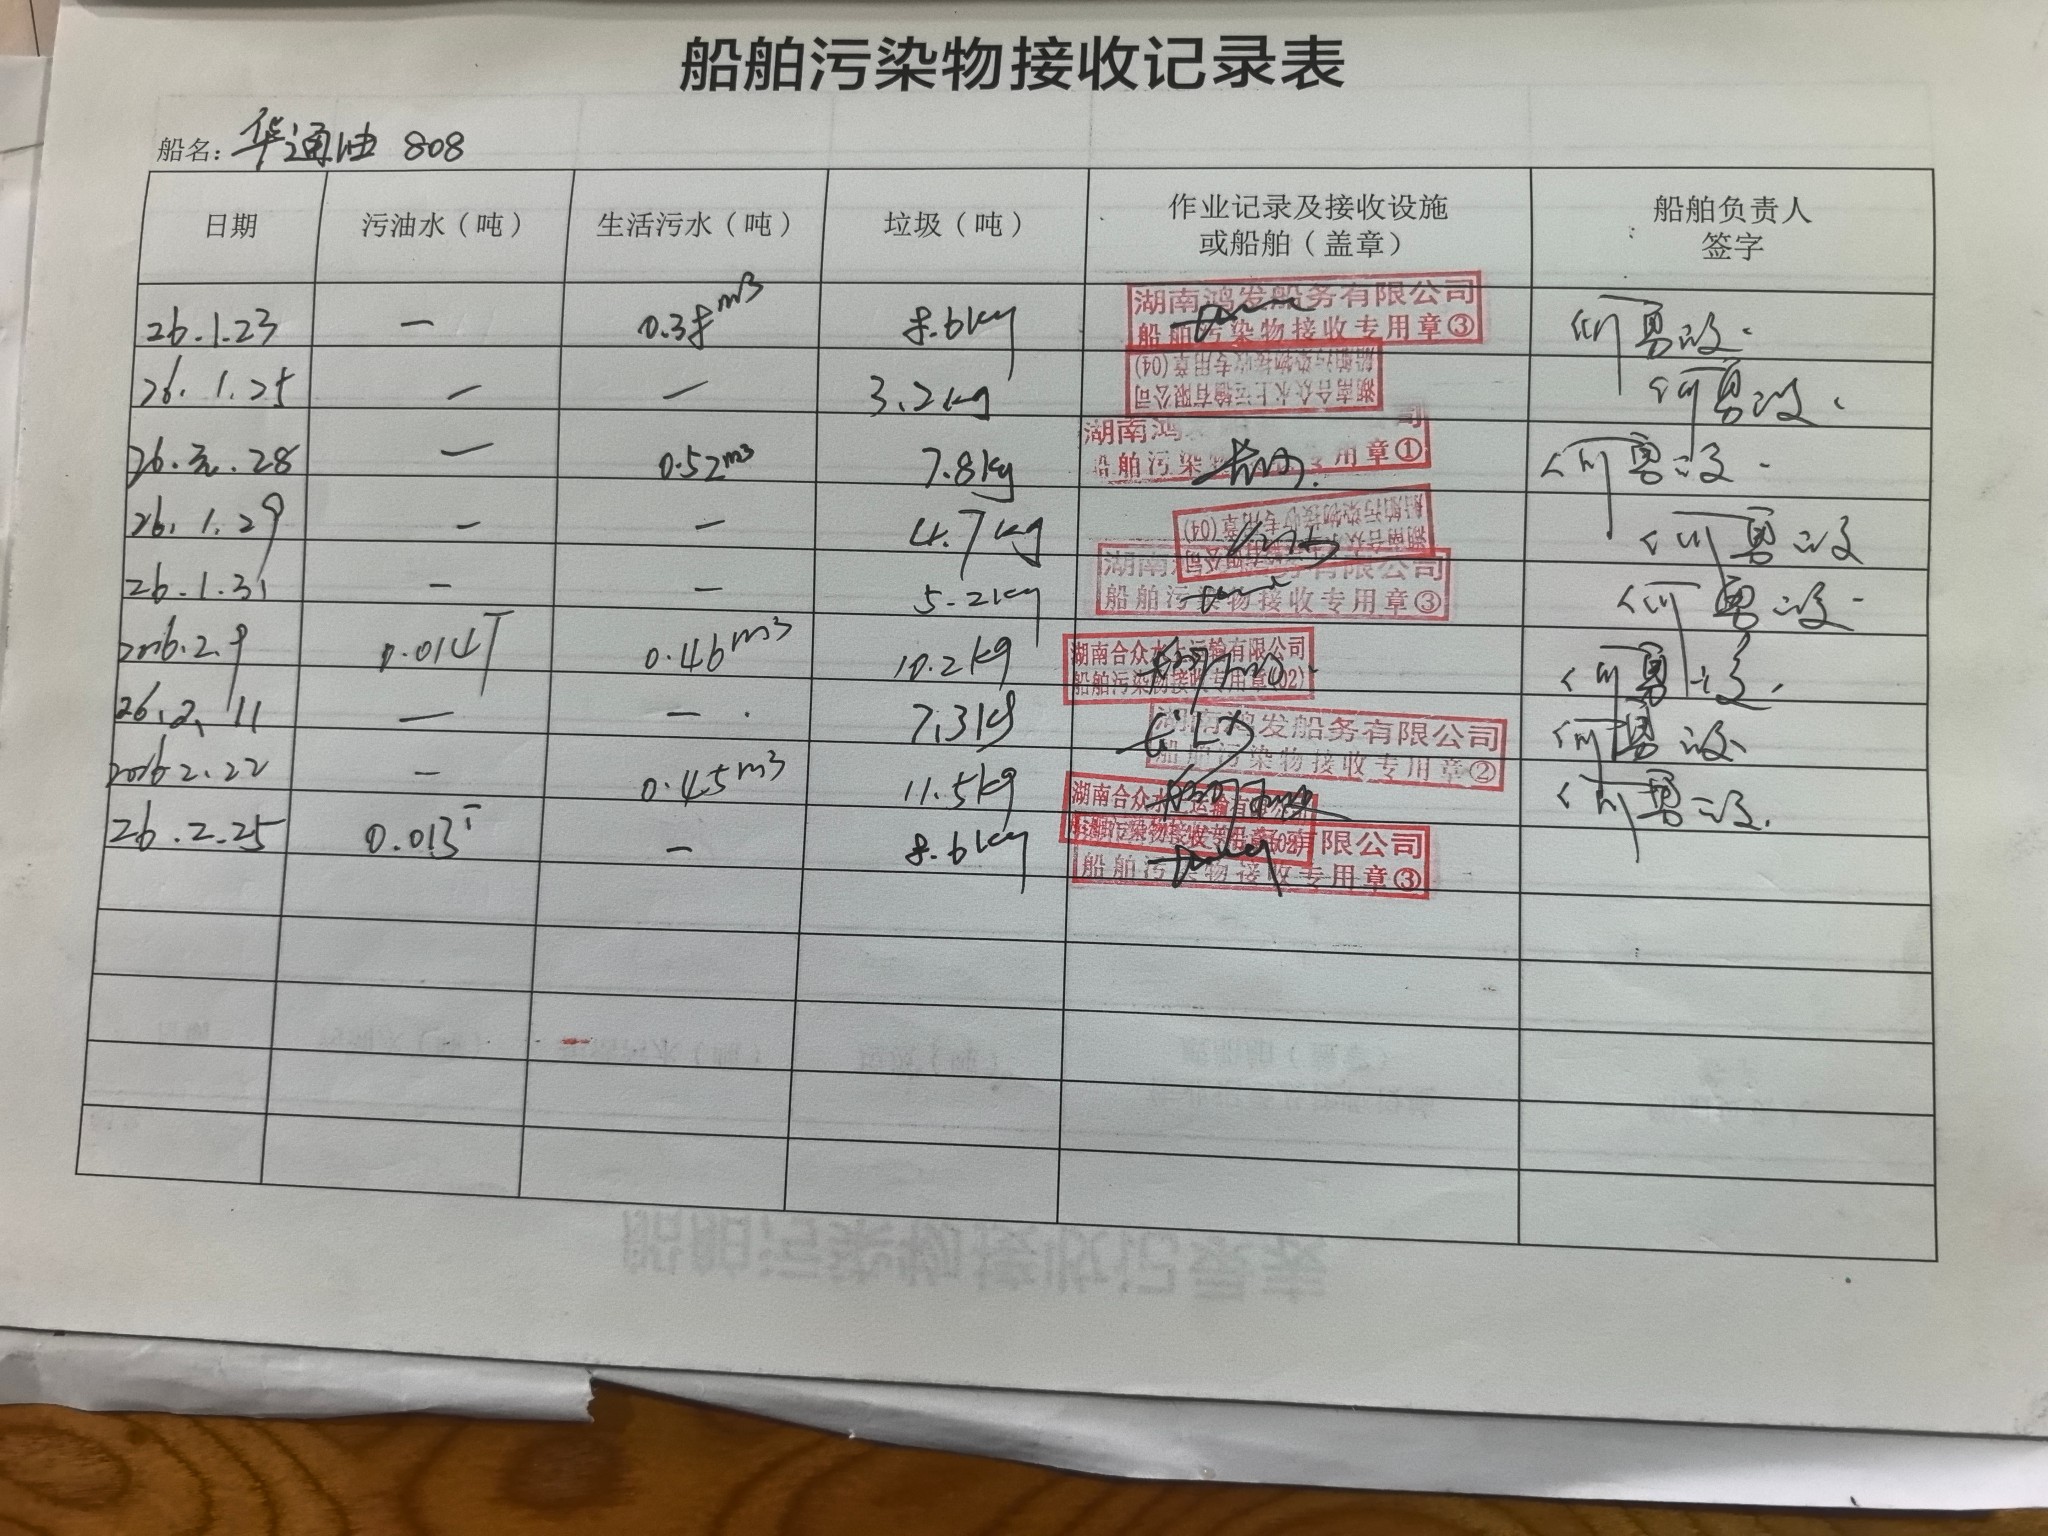 船舶污染物接收记录表
船名: 华通油 808
日期 污油水（吨） 生活污水（吨） 垃圾（吨） 作业记录及接收设施或船舶（盖章） 船舶负责人签字
26.1.23 — 0.38m³ 8.6kg 湖南鸿发船务有限公司 船舶污染物接收专用章③
26.1.25 — — 3.2kg 湖南合众水上运输有限公司 船舶污染物接收专用章(04)
26.元.28 — 0.52m³ 7.8kg 湖南鸿 司 船舶污染 用章①
26.1.29 — — 4.7kg 湖南合众 船舶污染物接收专用章(04)
26.1.31 — — 5.2kg 湖南 务有限公司 船舶污染物接收专用章③
2026.2.9 0.014T 0.46m³ 10.2kg 湖南合众水上运输有限公司 船舶污染物接收专用章(02)
26.2.11 — — 7.3kg 湖南鸿发船务有限公司 船舶污染物接收专用章②
2026.2.22 — 0.45m³ 11.5kg 湖南合众水上运输有限公司 船舶污染物接收专用章(02)
26.2.25 0.013T — 8.6kg 有限公司 船舶污染物接收专用章③